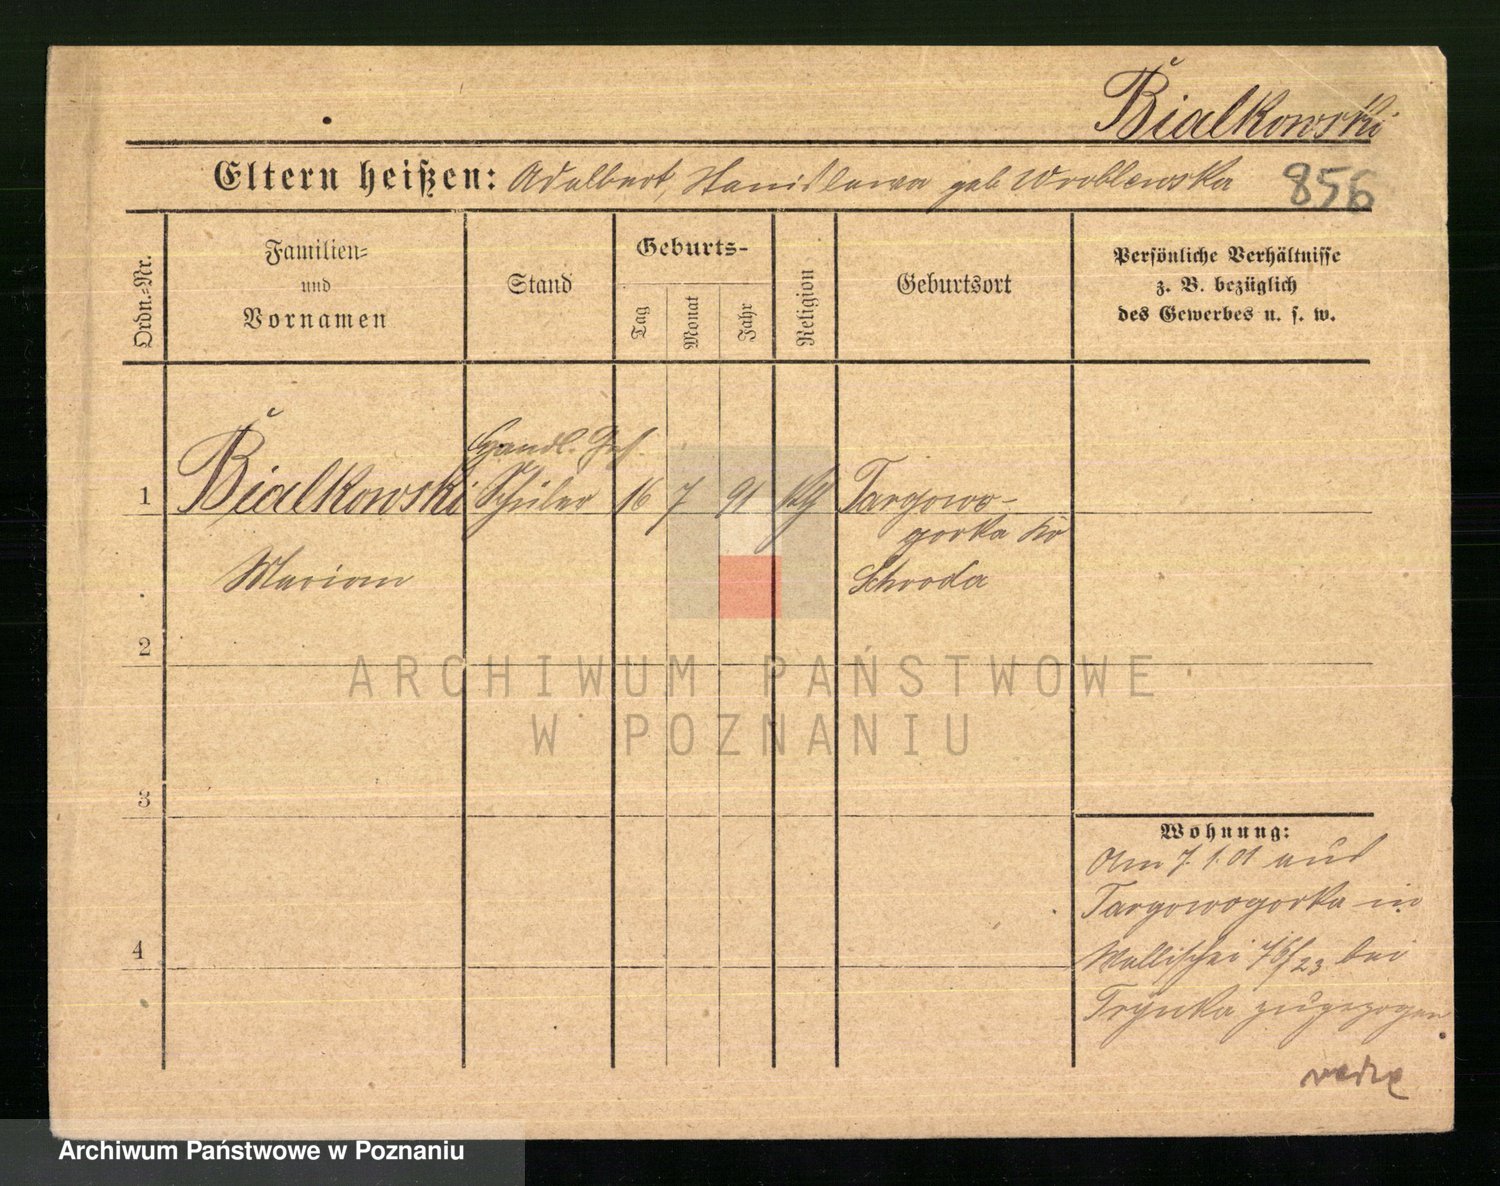 Bialkowski
Eltern heißen: Adalbert, Stanislawa geb Wroblewska 856
Ordn.-Nr.
Familien-
und
Vornamen
Stand
Geburts-
Tag
Monat
Jahr
Religion
Geburtsort
Persönliche Verhältnisse
z. B. bezüglich
des Gewerbes u. s. w.
Handl. Geh.
1 Bialkowski Schüler 16 7 91 kth Targowo-
gorka Kr
Marian Schroda
2
3
4
Wohnung:
Am 7.1.01 aus
Targowogorka in
Wallischei 76/23 bei
Trynka zugezogen
ARCHIWUM PAŃSTWOWE
W POZNANIU
Archiwum Państwowe w Poznaniu